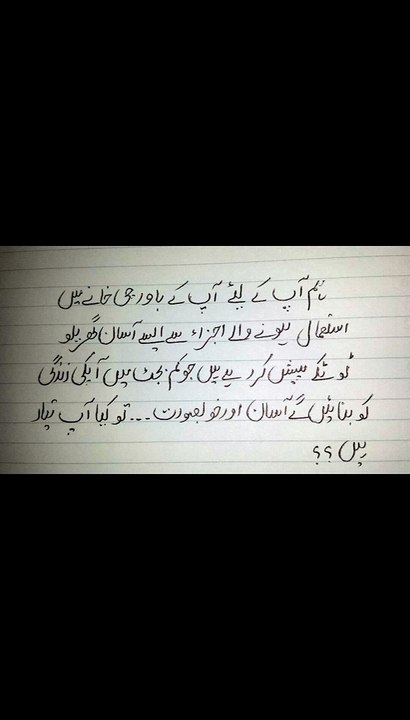 ہم آپ کے لیئے آپ کے باورچی خانے میں
استعمال ہونے والے اجزاء سے ایسے آسان گھریلو
ٹوٹکے پیش کر رہے ہیں جو کم بجٹ میں آپکی زندگی
کو بنائیں گے آسان اور خوبصورت ... تو کیا آپ تیار
ہیں ؟؟